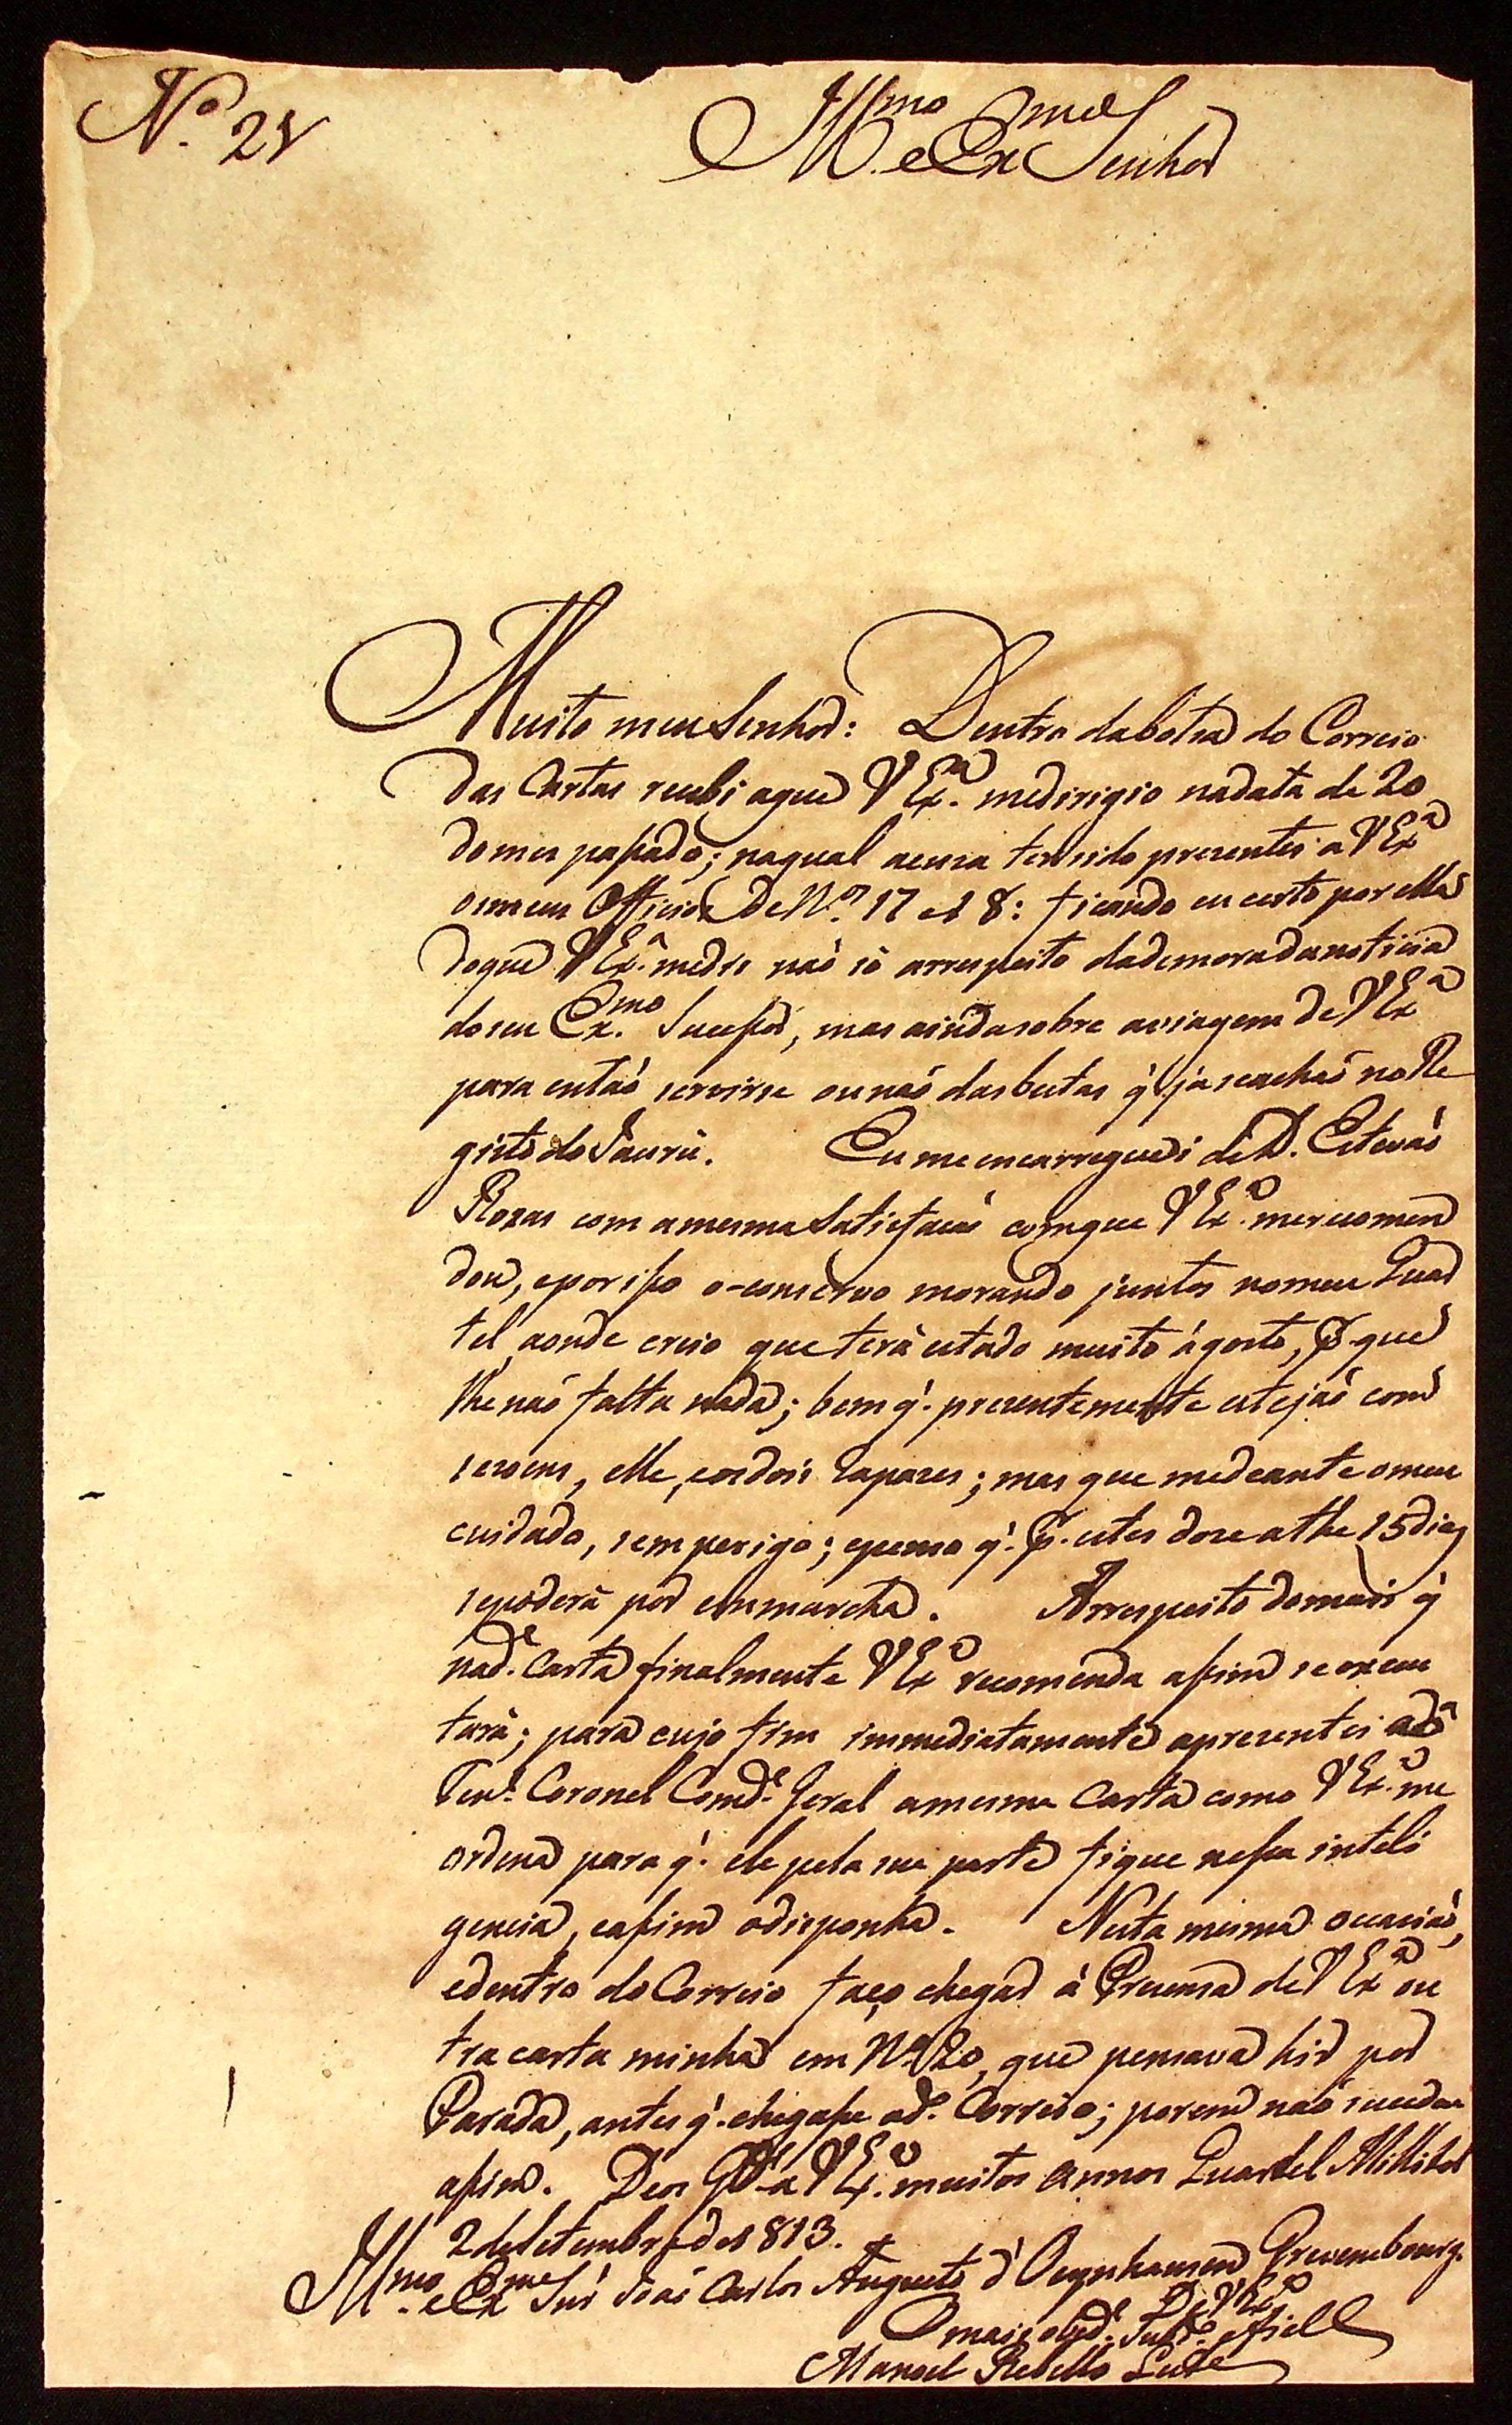 N.º 21
Ill.mo e Ex.mo Senhor
Muito meu Senhor: Dentro dabolsa do Correio
das Cartas recebi aque VEx.ª medirigio nadata de 20
domes passado; naqual acuza tersido prezentes a VEx.ª
osmeus Officios De N.os 17 e18: ficando eu certo por ella
deque VEx.ª mediz naõ só arrespeito dademora danoticia
do seu Ex.mo Sucessor, mas aindasobre aviagem de VEx.ª
para entaõ servirse ounaõ dasbestas q' ja seachaõ noRe
gisto do Jaurú. Eu meencarreguei de D. Estevaõ
Rozas com amesma Satisfacaõ comque VEx.ª merecomen
dou, eporisso o-conservo morando juntos nomeu Quar
tel, aonde creio que terá estado muito ágosto, Pr que
lhe naõ falta nada; bem q'. prezentemente estejaõ com
sezoens, elle, eosdois rapazes; mas que medeante omeu
cuidado, sem perigo; epenso q'. Pr. estes doze athe 15 dias
sepoderá por emmarcha. Arrespeito domais q'
nad.ª Carta finalmente VEx.ª recomenda assim se execu
tará; para cujo fim immediatamente aprezentei ao
Ten.e Coronel Comd.e Geral amesma Carta como VEx.ª me
ordena para q'. ele pela sua parte fique nessa inteli
gencia, eassim odisponha. Nesta mesma occaziaõ,
edentro do Correio faço chegar á Prezensa de VEx.ª ou
tra carta minha em N.º 20, que pensava hir por
Parada, antes q'. chegasse od.º Correio; porem naõ sucedeu
assim. Deos G.de a VEx.ª muitos annos Quartel Millitar
2 deSetembro de1813.
Ill.mo e Ex.mo Snr' Joaõ Carlos Augusto d'Oeynhausen Grevenebourg.
De VEx.ª
O mais obed.e Subd.º efiel
Manoel Rebello Leite